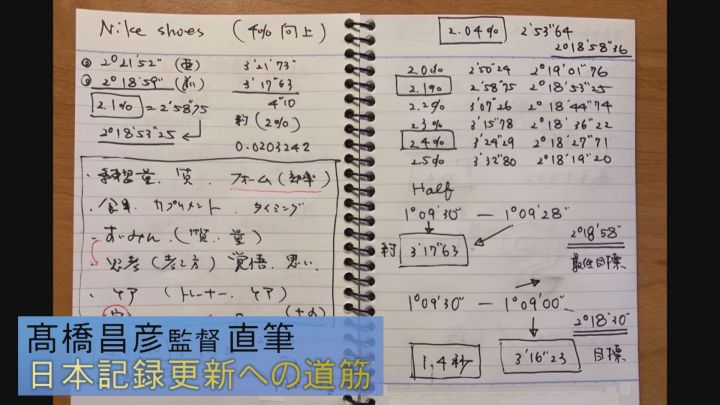 Nike shoes (4%向上)
2°21'52" 3'21"73
2°18'59" 3'17"63
2.1% = 2'58"75 4"10
約(2%)
2°18'53"25
0.0203242
・練習量、質、フォーム(効率)
・食事 サプリメント、タイミング
・すいみん、(質、量)
・思考(考え方) 覚悟、思い、
・ケア(トレーナー、ケア)
2.04% 2'53"64
2°18'58"36
2.0% 2'50"24 2°19'01"76
2.1% 2'58"75 2°18'53"25
2.2% 3'07"26 2°18'44"74
2.3% 3'15"78 2°18'36"22
2.4% 3'24"29 2°18'27"71
2.5% 3'32"80 2°18'19"20
Half
1°09'30" — 1°09'28"
約 3'17"63 2°18'58"
最低目標
1°09'30" — 1°09'00"
2°18'30"
1,4秒 3'16"23 目標
髙橋昌彦監督直筆
日本記録更新への道筋